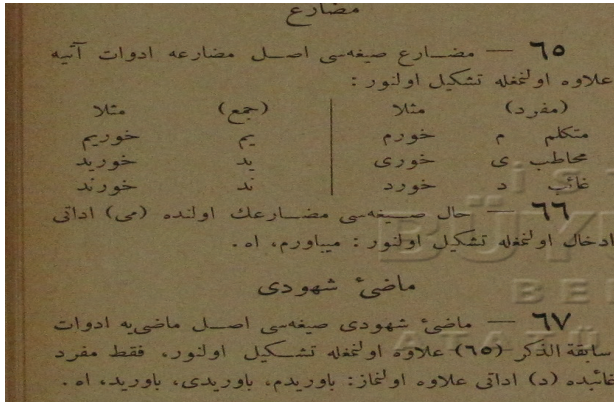 مضارع
٦٥ — مضارع صيغه‌سى اصل مضارعه ادوات آتيه
علاوه اولنمغله تشكيل اولنور :
(مفرد) مثلا (جمع) مثلا
متكلم م خورم يم خوريم
مخاطب ى خورى يد خوريد
غائب د خورد ند خورند
٦٦ — حال صيغه‌سى مضارعك اولنده (مى) اداتى
ادخال اولنمغله تشكيل اولنور : مياورم، اه.
ماضئ شهودى
٦٧ — ماضئ شهودى صيغه‌سى اصل ماضى‌يه ادوات
سابقة الذكر (٦٥) علاوه اولنمغله تشكيل اولنور، فقط مفرد
غائبده (د) اداتى علاوه اولنماز: باوريدم، باوريدى، باوريد، اه.